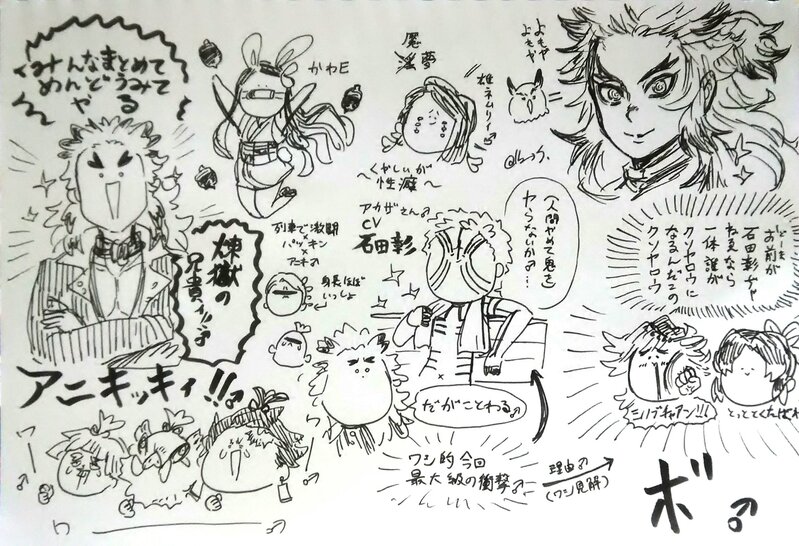 みんなまとめて
めんどうみて
やる
かわE
魘
淫夢
雄ネムリィ♂
よもや
よもや
〜くやしいが
性癖〜
アカザさん♂
CV
石田彰
列車で激闘
×
パッキン
アニキ♂
身長ほぼ
いっしょ
煉獄の
兄貴ィッ♂
アニキッキィ!!♂
人間やめて鬼を
ヤらないか♂…
だがことわる♂
ワシ的今回
最大級の衝撃♂
理由♂
(ワシ見解)
お前が
石田彰ヂャ
ねえなら
一体誰が
クソヤロウに
なるんだこの
クソヤロウ
シノブチャアン!!!
とっととくたばれ
ボ♂